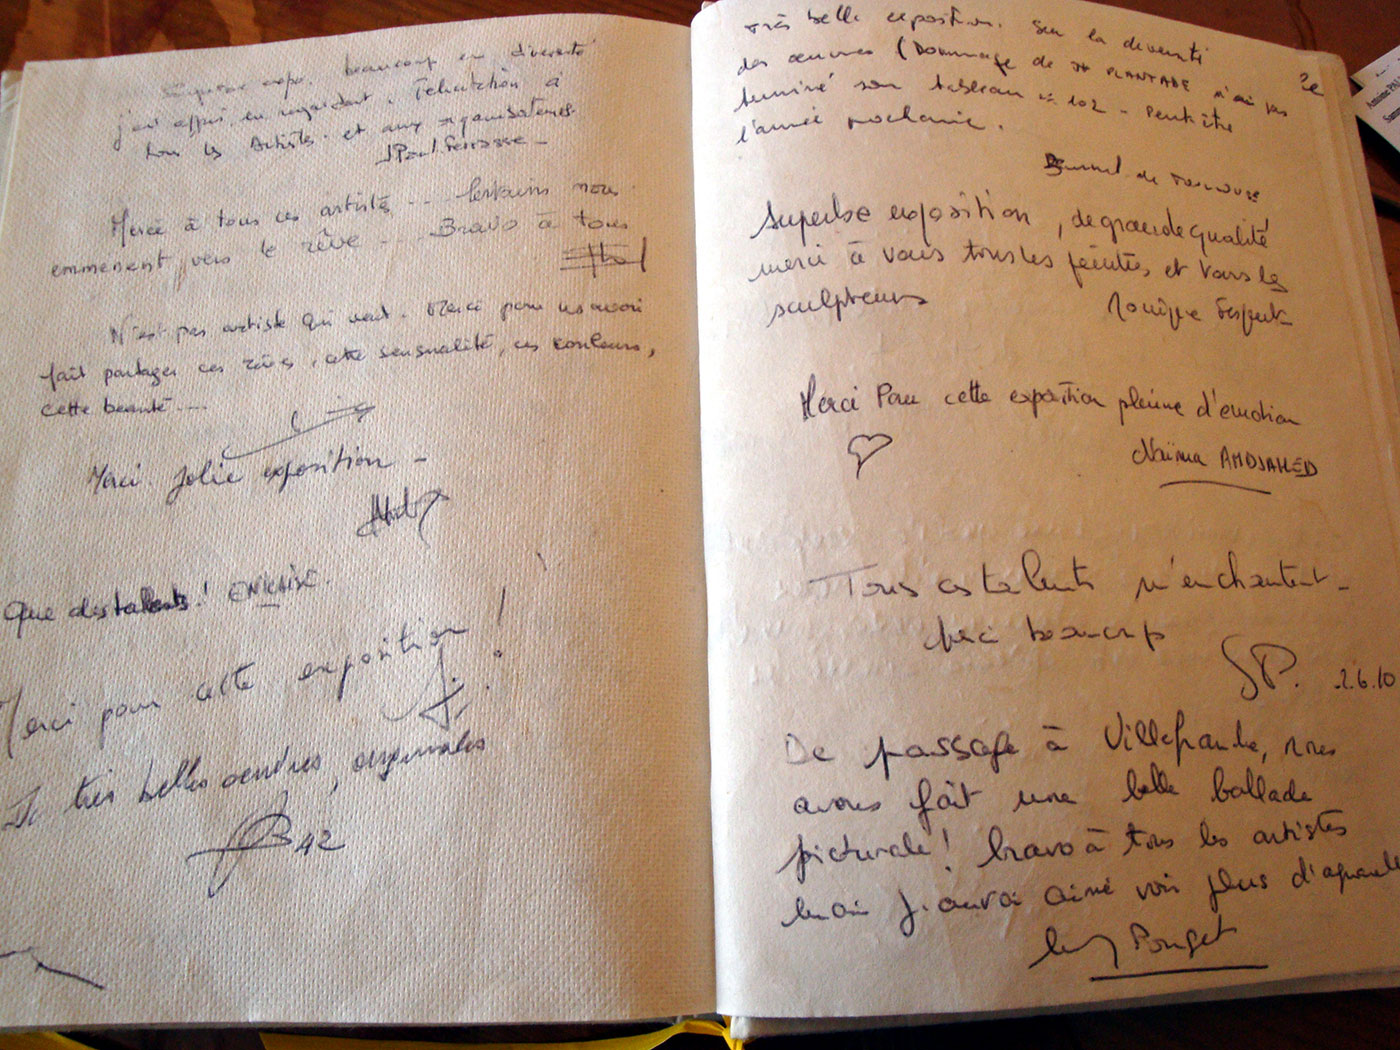 expo. beaucoup en diversité
j'ai appris en regardant. Félicitation à
tous les Artistes et aux organisateurs
JPaul Terrasse -
Merci à tous ces artistes ... Certains nous
emmènent vers le rêve ... Bravo à tous
N'est pas artiste qui veut. Merci pour nous avoir
fait partager ces rêves, cette sensualité, ces couleurs,
cette beauté ...
Merci. Jolie exposition -
Que des talents!
Merci pour cette exposition!
De très belles oeuvres, originales
42
Très belle exposition. Sur la diversité
des oeuvres (Dommage de PLANTADE n'ai pas
terminé son tableau n° 102 - Peut être
l'année prochaine.
de Toulouse
Superbe exposition, de grande qualité
merci à vous tous les peintres et tous les
sculpteurs
Merci Pour cette exposition pleine d'emotion
Naïma AMDJAHED
Tous ces talents m'enchantent -
Merci beaucoup
SP. 2.6.10
De passage à Villefranche, nous
avons fait une belle ballade
picturale! bravo à tous les artistes
mais j'aurai aimé voir plus d'aquarelle
Pouget